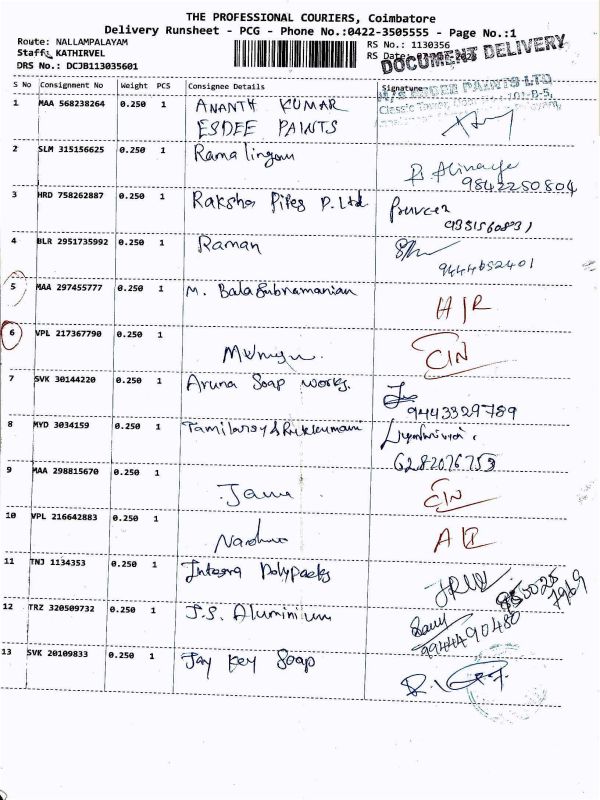 THE PROFESSIONAL COURIERS, Coimbatore
Delivery Runsheet - PCG - Phone No.:0422-3505555 - Page No.:1
Route: NALLAMPALAYAM
Staff: KATHIRVEL
DRS No.: DCJB113035601
RS No.: 1130356
RS Date:
DOCUMENT DELIVERY
S No Consignment No Weight PCS Consignee Details Signature
M/S ESDEE PAINTS LTD
Classic Tower,
1 MAA 568238264 0.250 1 ANANTH KUMAR
ESDEE PAINTS
2 SLM 315156625 0.250 1 Ramalingam
9842250804
3 HRD 758262887 0.250 1 Raksha Pipes P. Ltd
4 BLR 2951735992 0.250 1 Raman
9444652401
5 MAA 297455777 0.250 1 M. Balasubramanian
6 VPL 217367790 0.250 1
7 SVK 30144220 0.250 1 Aruna Soap Works.
9443329789
8 MYD 3034159 0.250 1
6282076753
9 MAA 298815670 0.250 1
10 VPL 216642883 0.250 1
11 TNJ 1134353 0.250 1 Integra Polypacks
12 TRZ 320509732 0.250 1 J.S. Aluminium
9944490480
13 SVK 20109833 0.250 1 Jay Key Soap